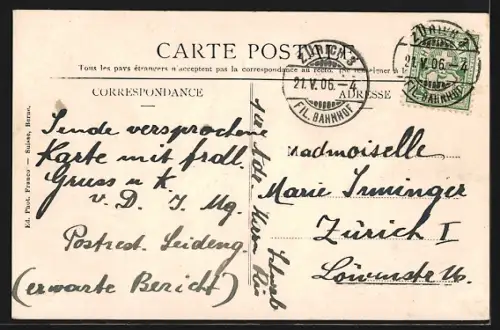 CARTE POSTALE
Tous les pays étrangers n'acceptent pas la correspondance au recto.
CORRESPONDANCE
ADRESSE
ZÜRICH 3
21.V.06.-4
FIL. BAHNHOF
ZÜRICH 3
21.V.06.-4
FIL. BAHNHOF
Sende versprochene
Karte mit frdl.
Gruss u. K.
v. D. J. Mg.
Postrest. Seideng.
(erwarte Bericht)
Mademoiselle
Marie Irminger
Zürich I
Löwenstr
Ed. Phot. Franco-Suisse, Berne.